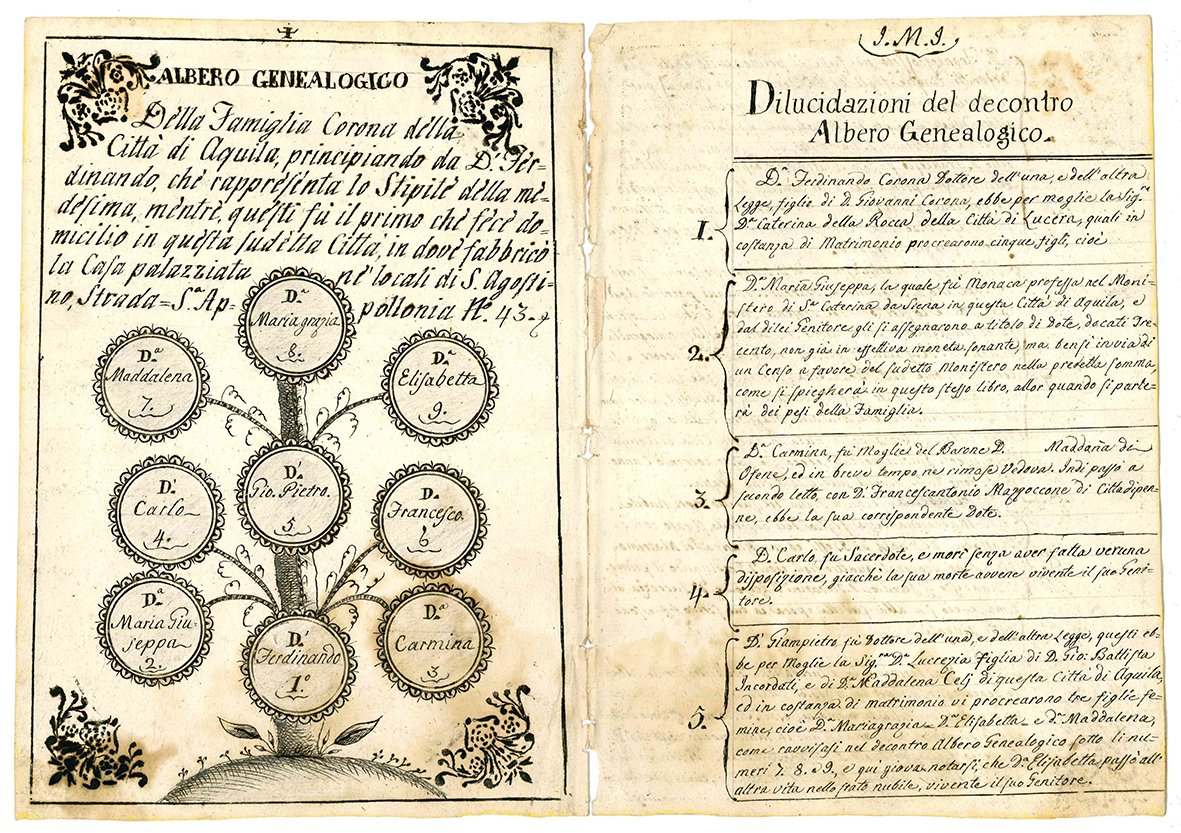 1
ALBERO GENEALOGICO
Della Famiglia Corona della
Città di Aquila, principiando da D. Fer-
dinando, che rappresenta lo Stipite della me-
desima, mentre, questi fù il primo che fece do-
micilio in questa sudetta Città, in dove fabbricò
la Casa palazziata ne' locali di S. Agosti-
no, Strada= S.a Ap- pollonia N.o 43.
D.a
Mariagrazia
8.
D.a
Maddalena
7.
D.a
Elisabetta
9.
D.
Gio. Pietro.
5.
D.
Carlo
4.
D.
Francesco.
6
D.a
Maria Giu-
seppa
2.
D.
Ferdinando
1.o
D.a
Carmina
3.
I. M. I.
Dilucidazioni del decontro
Albero Genealogico.
1.
D. Ferdinando Corona Dottore dell'una, e dell'altra
Legge, figlio di D. Giovanni Corona, ebbe per moglie la Sig.ra
D.a Caterina della Rocca della Città di Lucera, quali in
costanza di Matrimonio procrearono cinque figli, cioè
2.
D.a Maria Giuseppa, la quale fù Monaca professa nel Moni-
stero di S.a Caterina da Siena in questa Città di Aquila, e
dal dilei Genitore gli si assegnarono a titolo di Dote, docati Tre-
cento, non già in effettiva moneta sonante, ma bensì in via di
un Censo a favore del sudetto Monistero nella predetta somma,
come si spiegherà in questo stesso libro, allor quando si parle-
rà dei pesi della Famiglia.
3.
D.a Carmina, fù Moglie del Barone D. Maddana di
Ofene, ed in breve tempo ne rimase Vedova. Indi passò a
secondo letto, con D. Francescantonio Mazzoccone di Cittadipen-
ne, ebbe la sua corrispondente Dote.
4.
D. Carlo, fu Sacerdote, e morì senza aver fatta veruna
disposizione, giacchè la sua morte avvene vivente il suo Geni-
tore.
5.
D. Giampietro fù Dottore dell'una, e dell'altra Legge, questi eb-
be per Moglie la Sig.ra D.a Lucrezia figlia di D. Gio: Battista
Incordati, e di D.a Maddalena Celj di questa Città di Aquila,
ed in costanza di matrimonio vi procrearono tre figlie fe-
mine, cioè D.a Mariagrazia= D.a Elisabetta= e D.a Maddalena,
come ravvisasi nel decontro Albero Genealogico sotto li nu-
meri 7. 8. e 9., e qui giova notarsi, che D.a Elisabetta passò all'
altra vita nello stato nubile, vivente il suo Genitore.